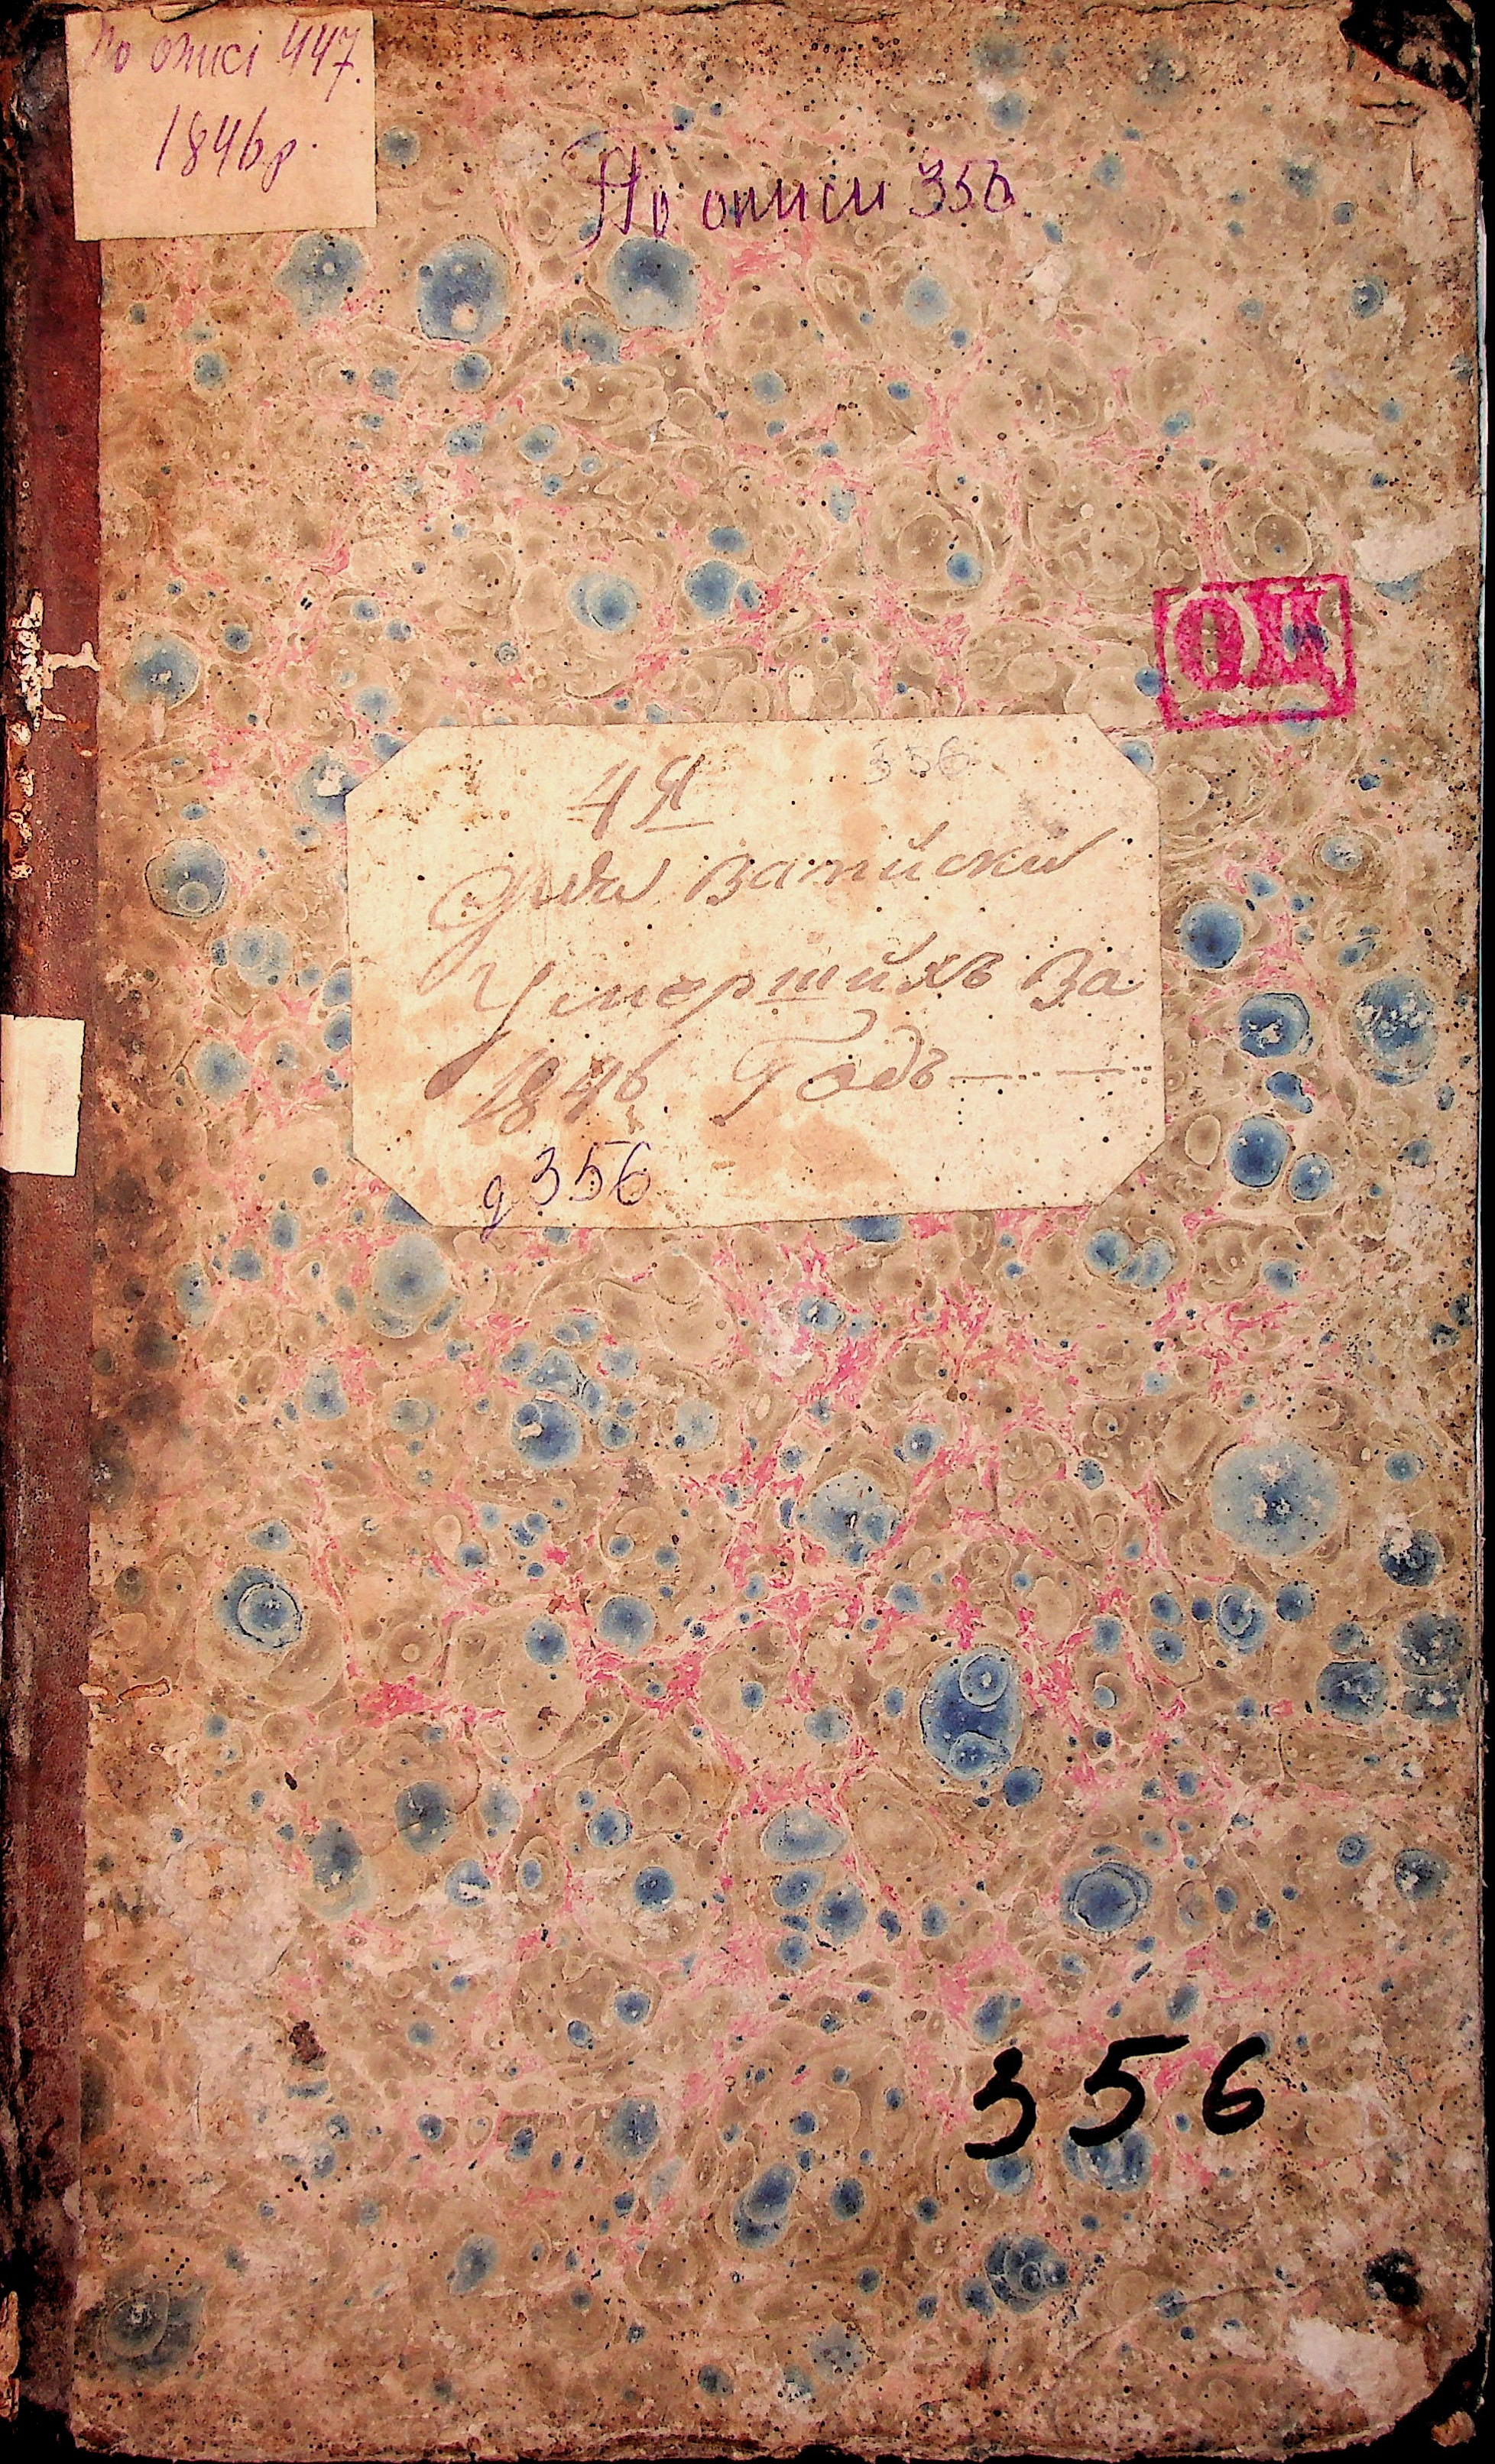 По описі 447.
1846р.
По описи 356
ОЦ
356
4я
Для Записки
Умершихъ За
1846 Годъ
д 356
356